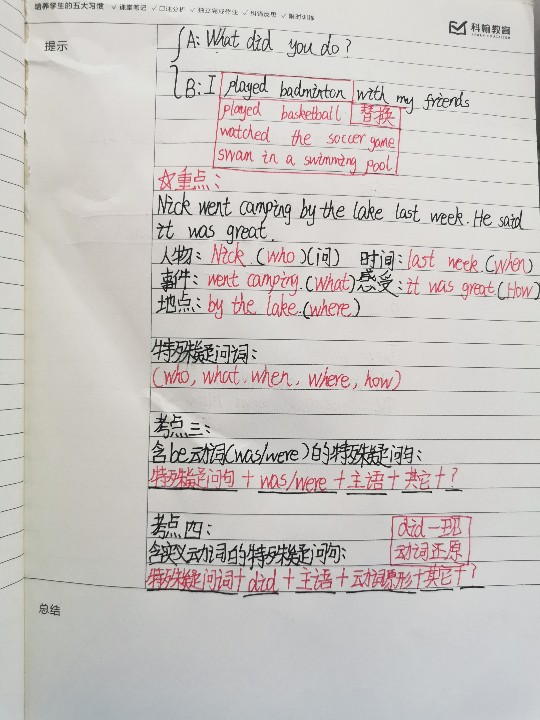 培养学生的五大习惯 ✓课堂笔记 ✓口述分析 ✓独立完成作业 ✓纠错反思 ✓限时训练
科翰教育
提示
A: What did you do?
B: I played badminton with my friends
played basketball 替换
watched the soccer game
swam in a swimming pool
☆重点:
Nick went camping by the lake last week. He said
it was great.
人物: Nick (who)(问) 时间: last week (when)
事件: went camping. (what) 感受: it was great (How)
地点: by the lake. (where)
特殊疑问词:
(who, what, when, where, how)
考点三:
含be动词(was/were)的特殊疑问句:
特殊疑问句 + was/were + 主语 + 其它 + ?
考点四:
did一班
动词还原
含实义动词的特殊疑问句:
特殊疑问词 + did + 主语 + 动词原形 + 其它 + ?
总结